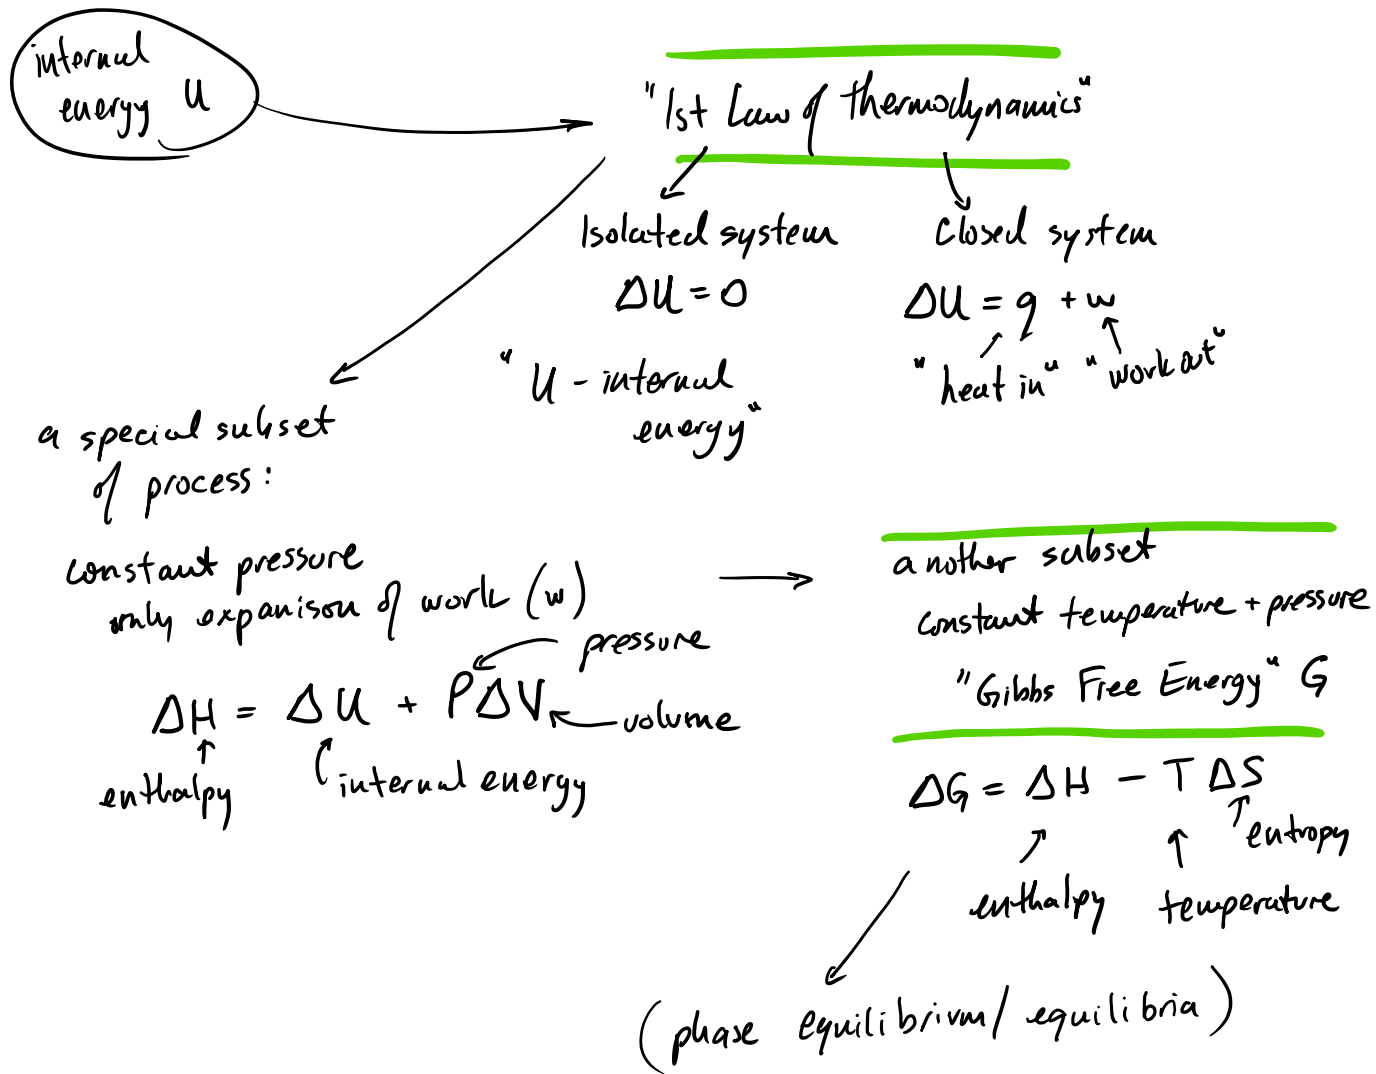 internal
energy U
"1st Law of thermodynamics"
Isolated system
ΔU = 0
"U - internal
energy"
Closed system
ΔU = q + w
"heat in" "work out"
a special subset
of process:
constant pressure
only expanison of work (w)
pressure
ΔH = ΔU + PΔV
volume
enthalpy
internal energy
another subset
constant temperature + pressure
"Gibbs Free Energy" G
ΔG = ΔH - TΔS
entropy
enthalpy
temperature
(phase equilibrium/equilibria)